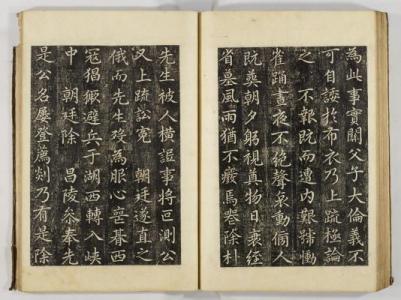 為此事實關父子大倫義不
可自諉於布衣乃上疏極論
之不報既而遭內艱號慟
雀踊晝夜不絶聲哀動傍人
既葬朝夕躬視奠物日衰絰
省墓風雨猶不癈焉服除朴
先生被人橫誣事將叵測公
又上疏訟寃 朝廷遂直之
俄而先生歿為服心喪朞西
冦猖獗避兵于湖西轉入峽
中 朝廷除 昌陵叅奉先
是公名屢登薦剡乃有是除